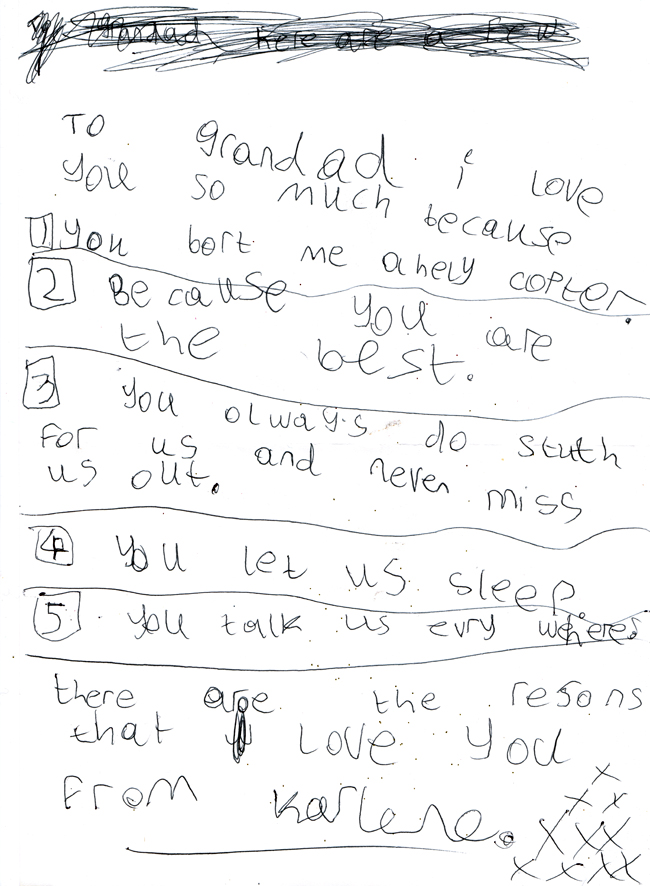 Grandad Here are a few
To grandad i love
you so much because
1 you bort me a hely copter.
2 Because you are
the best.
3 you olways do stuth
for us and never miss
us out.
4 you let us sleep.
5 you talk us evry wheres
there are the resons
that I love you
From Karlene.
x
x x
x x x
x x x x